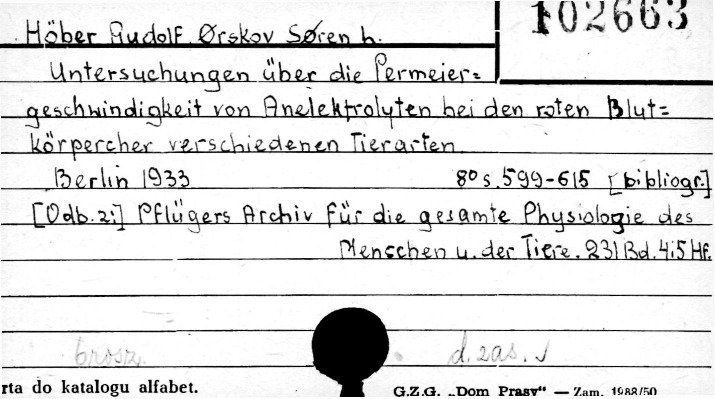 102663
Höber Rudolf, Ørskov Søren h.
Untersuchungen über die Permeier=
geschwindigkeit von Anelektrolyten bei den roten Blut=
körpercher verschiedenen Tierarten
Berlin 1933 8⁰ s. 599-615 [bibliogr.]
[Odb. z:] Pflügers Archiv für die gesamte Physiologie des
Menschen u. der Tiere. 231 Bd. 4:5 Hf.
brosz. d. zas.
rta do katalogu alfabet. G.Z.G. „Dom Prasy" — Zam. 1988/50